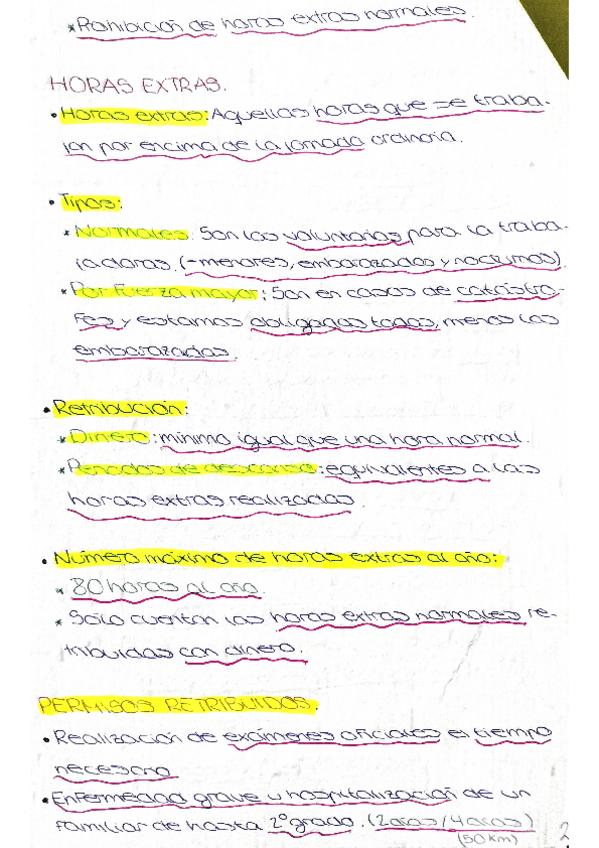 * Prohibición de horas extras normales.
HORAS EXTRAS.
• Horas extras: Aquellas horas que se traba-
jan por encima de la jornada ordinaria.
• Tipos:
* Normales: Son las voluntarias para la traba-
jadoras. (-menores, embarazadas y nocturnos)
* Por Fuerza mayor: Son en casos de catástro-
fes y estamos obligados todos, menos las
embarazadas.
• Retribución:
* Dinero: mínimo igual que una hora normal.
* Periodos de descanso: equivalentes a las
horas extras realizadas.
• Número máximo de horas extras al año:
* 80 horas al año.
* Sólo cuentan las horas extras normales re-
tribuidas con dinero.
PERMISOS RETRIBUIDOS.
• Realización de exámenes oficiales el tiempo
necesario
• Enfermedad grave u hospitalización de un
familiar de hasta 2º grado. (2 días / 4 días)
(50 km)
2